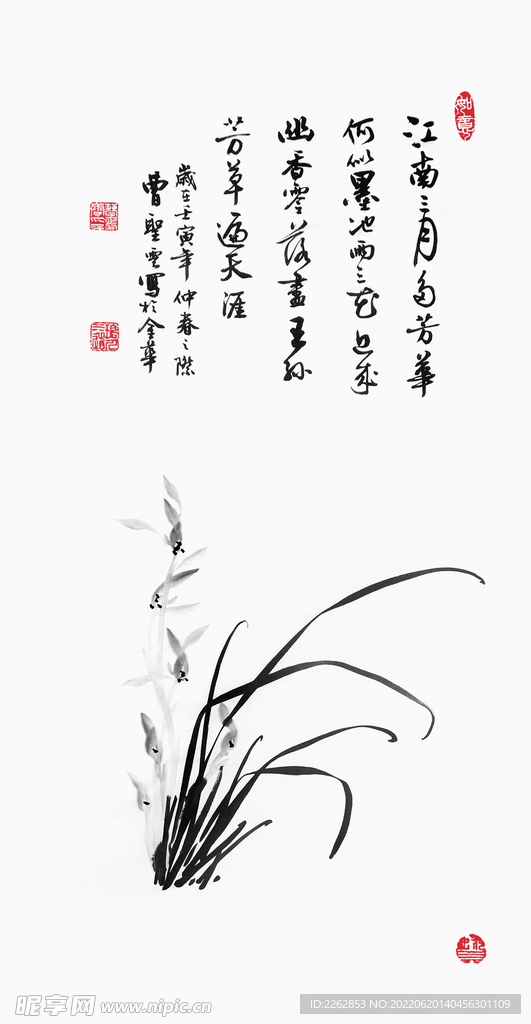 如意
江南三月多芳華
何似墨池兩三花
幽香零落盡王孫
芳草遍天涯
歲在壬寅年仲春之際
曹聖雲寫於金華
昵享网 www.nipic.cn
ID:2262853 NO:20220620140456301109